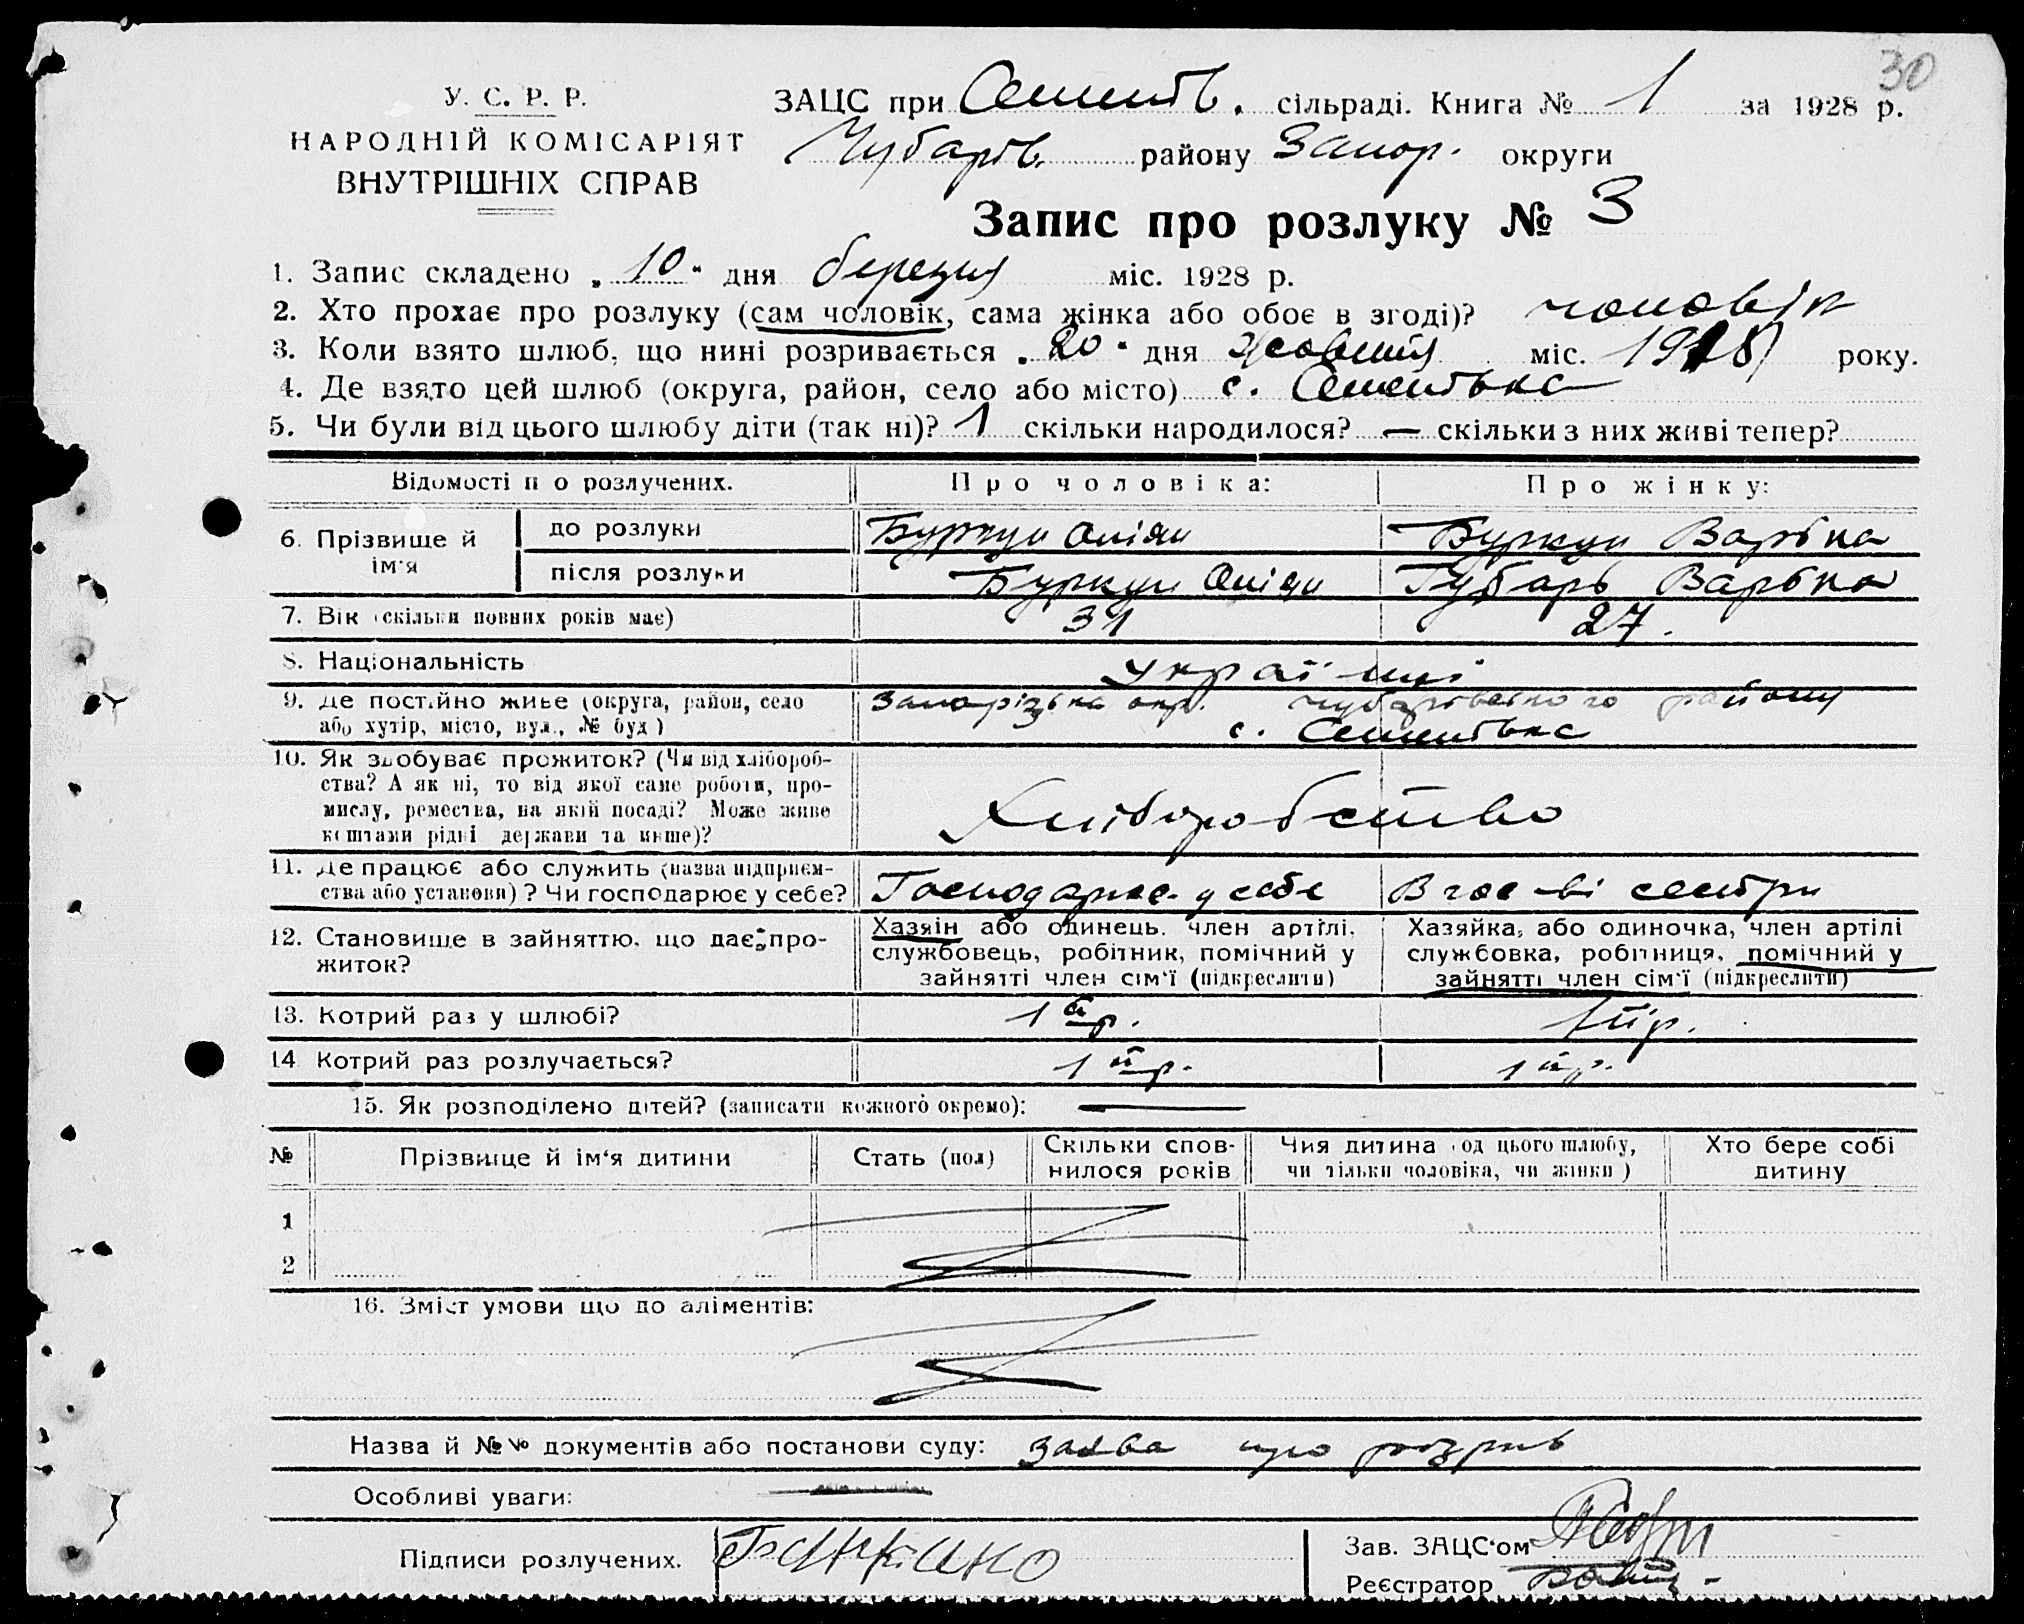 30
У. С. Р. Р.
НАРОДНІЙ КОМІСАРІЯТ
ВНУТРІШНІХ СПРАВ
ЗАЦС при Семенів. сільраді. Книга № 1 за 1928 р.
Чубарів. району Запор. округи
Запис про розлуку № 3
1. Запис складено „10" дня березня міс. 1928 р.
2. Хто прохає про розлуку (сам чоловік, сама жінка або обоє в згоді)? чоловік
3. Коли взято шлюб, що нині розривається „20" дня жовтня міс. 1918 року.
4. Де взято цей шлюб (округа, район, село або місто) с. Семенівка
5. Чи були від цього шлюбу діти (так ні)? 1 скільки народилося? — скільки з них живі тепер?
Відомості п о розлучених. Про чоловіка: Про жінку:
6. Прізвище й ім'я до розлуки Буркун Буркун Варвка
після розлуки Буркун Губарь Варвка
7. Вік (скільки повних років має) 31 27.
8. Національність українці
9. Де постійно живе (округа, район, село Запорізька окр. Чубарівського району
або хутір, місто, вул., № буд) с. Семенівка
10. Як здобуває прожиток? (Чи від хлібороб-
ства? А як ні, то від якої саме роботи, про-
мислу, ремества, на якій посаді? Може живе
коштами рідні держави та инше)? Хліборобство
11. Де працює або служить (назва підприєм-
ства або установи)? Чи господарює у себе? Господарює у себе В гос-ві сестри
12. Становище в зайняттю, що дає про-
житок?
Хазяін або одинець. член артілі,
службовець, робітник, помічний у
зайнятті член сім'ї (підкреслити)
Хазяйка, або одиночка, член артілі
службовка, робітниця, помічний у
зайнятті член сім'ї (підкреслити)
13. Котрий раз у шлюбі? 1й р. 1й р.
14 Котрий раз розлучається? 1й р. 1й р.
15. Як розподілено дітей? (записати кожного окремо): —
№ Прізвище й ім'я дитини Стать (пол) Скільки спов-
нилося років Чия дитина (од цього шлюбу,
чи тільки чоловіка, чи жінки) Хто бере собі
дитину
1
2
16. Зміст умови що до аліментів:
Назва й №№ документів або постанови суду: заява про розрив
Особливі уваги: —
Підписи розлучених.
Зав. ЗАЦС'ом
Реєстратор